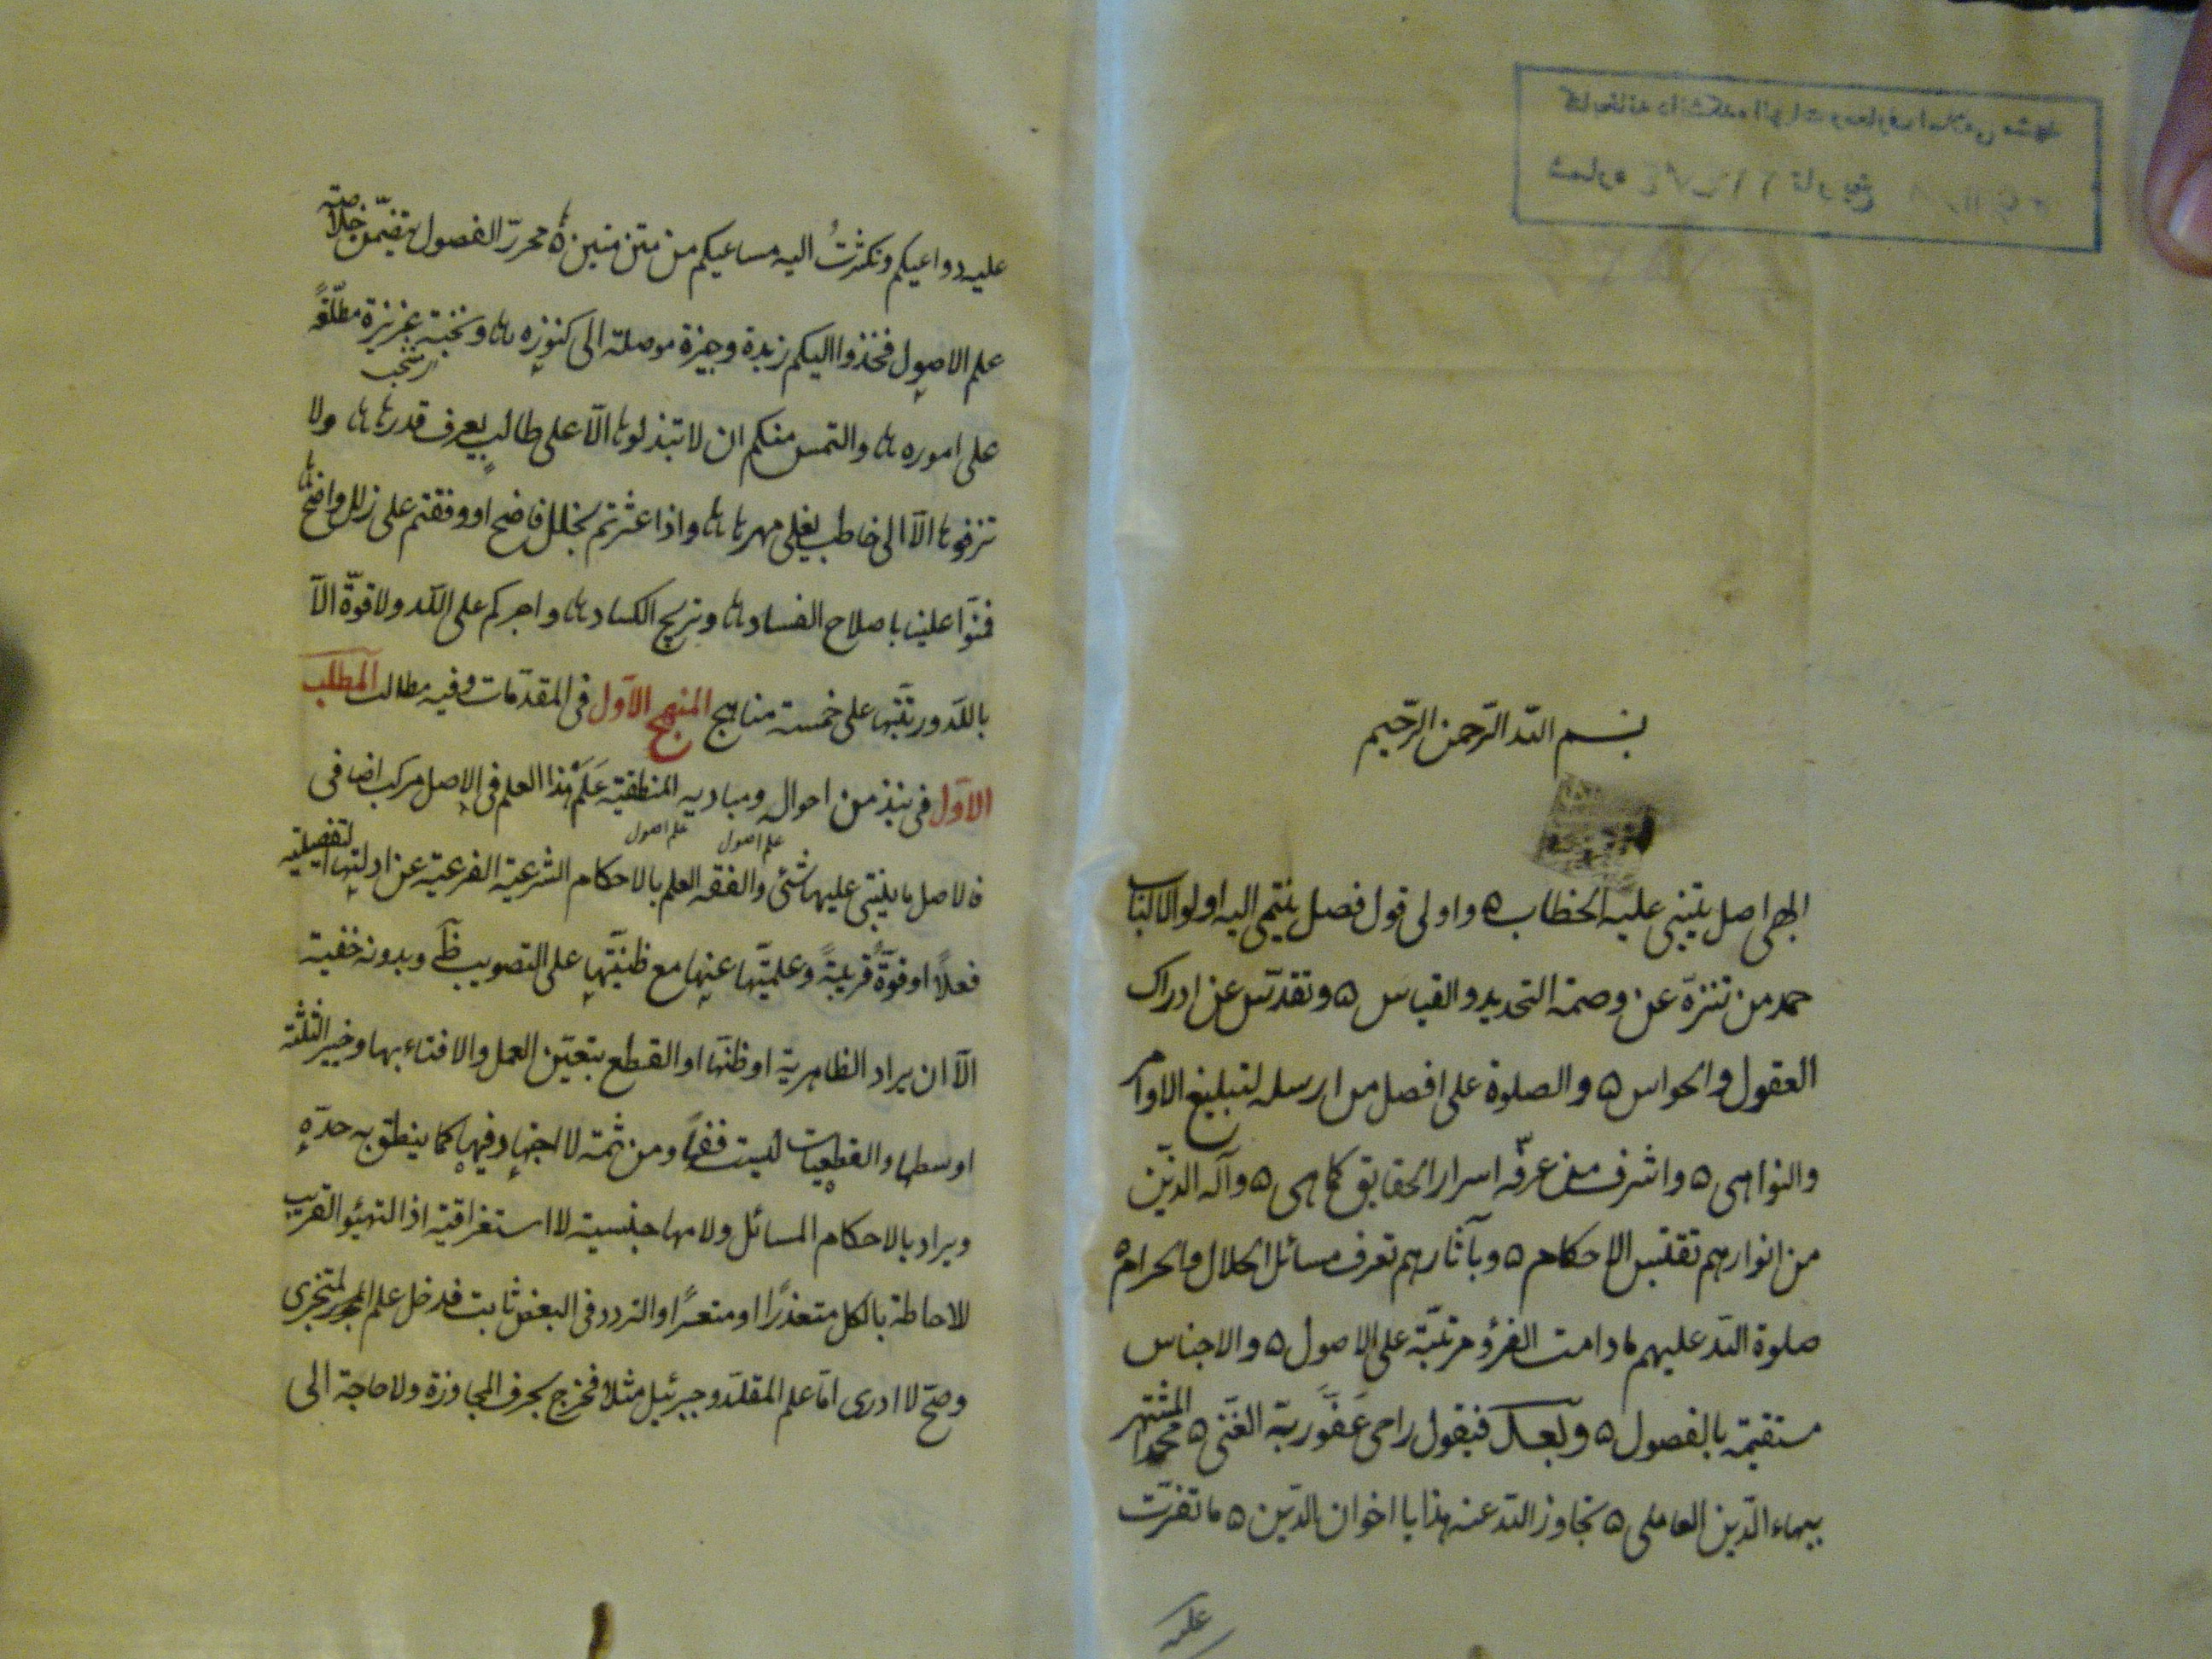 بسم الله الرحمن الرحيم
ابهى اصل يبتنى عليه الخطاب ۵ و اولى قول فصل ينتمى اليه اولوا الالباب
حمد من تنزه عن وصمة التحديد و القياس ۵ و تقدس عن ادراك
العقول و الحواس ۵ و الصلوة على افضل من ارسله لتبليغ الاوامر
و النواهى ۵ و اشرف من عرفه اسرار الحقايق كما هى ۵ و آله الذين
من انوارهم تقتبس الاحكام ۵ و بآثارهم تعرف مسائل الحلال و الحرام ۵
صلوة الله عليهم مادامت الفروع مرتبة على الاصول ۵ و الاجناس
متقيمة بالفصول ۵ و بعد فيقول راجى عفو ربه الغنى ۵ محمد المشتهر
ببهاء الدين العاملى ۵ تجاوز الله عنه هذا يا اخوان الدين ۵ ما تقررت
عليه
عليه دواعيكم و تكثرت اليه مساعيكم من متن متين ۵ محرر الفصول يتضمن خلاصة
علم الاصول فخذوا اليكم زبدة وجيزة موصلة الى كنوزه ها و نخبة عزيزة مطلعة
على اموره ها و التمس منكم ان لا تبذلوها الا على طالب يعرف قدرها ها ولا
تزفوها الا الى خاطب يغلى مهرها ها و اذا عثرتم بخلل فاضح او وقفتم على زلل واضح ها
فمنوا علينا باصلاح الفساد ها و ترويج الكساد ها و اجركم على الله ولا قوة الا
بالله و رتبتها على خمسة مناهج المنهج الاول فى المقدمات و فيه مطالب المطلب
الاول فى نبذ من احواله و مباديه المنطقية علم هذا العلم فى الاصل مركب اضافى
علم اصول علم اصول
فالاصل ما يبتنى عليه شئ و الفقه العلم بالاحكام الشرعية الفرعية عن ادلتها التفصيلية
فعلا او قوة قريبة و علميتها عنها مع ظنيتها على التصويب ظ و بدونه خفية
الا ان يراد الظاهرية او ظنها او القطع بتعين العمل و الافتاء بها و خير الثلثة
اوسطها و القطعيات ليست فقها و من ثمة لا اجتهاد فيها كما ينطق به حده
و يراد بالاحكام المسائل ولامها جنسية لا استغراقية اذ التهيئو القريب
للاحاطة بالكل متعذرا او متعسرا و التردد فى البعض ثابت فدخل علم المتجزى
و صح لا ادرى اما علم المقلد و جبرئيل مثلا فخرج بحرف المجاوزة ولا حاجة الى